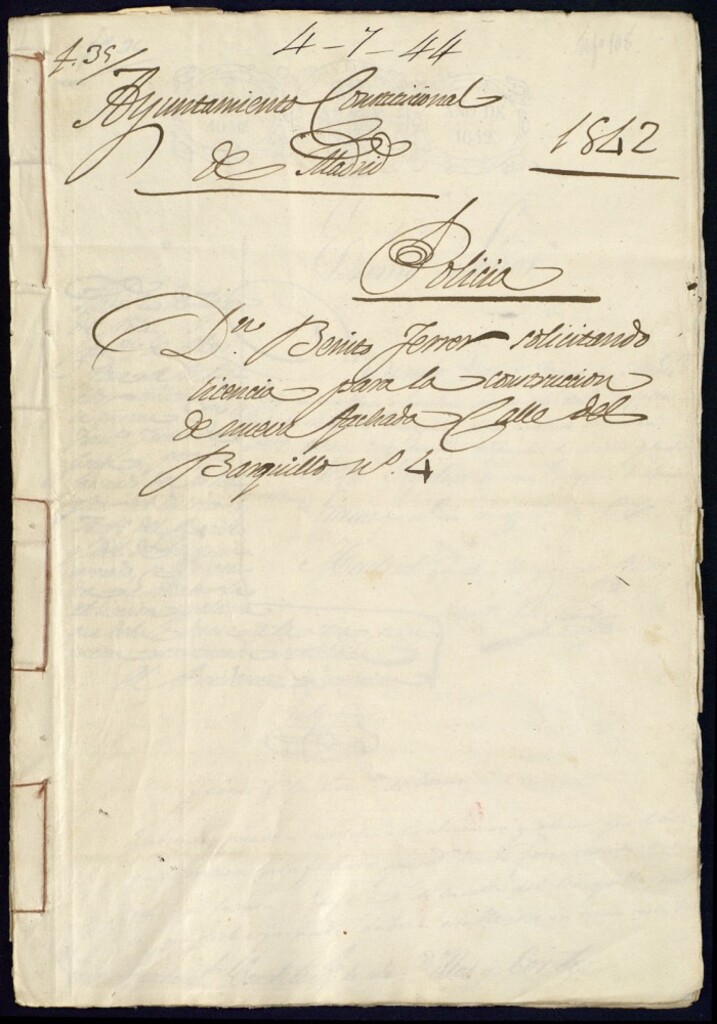 4-7-44
f. 39/
Ayuntamiento Constitucional
de Madrid
1842
Policia
Dn. Benito Ferrer solicitando
licencia para la construccion
de nueva fachada Calle del
Barquillo nº. 4